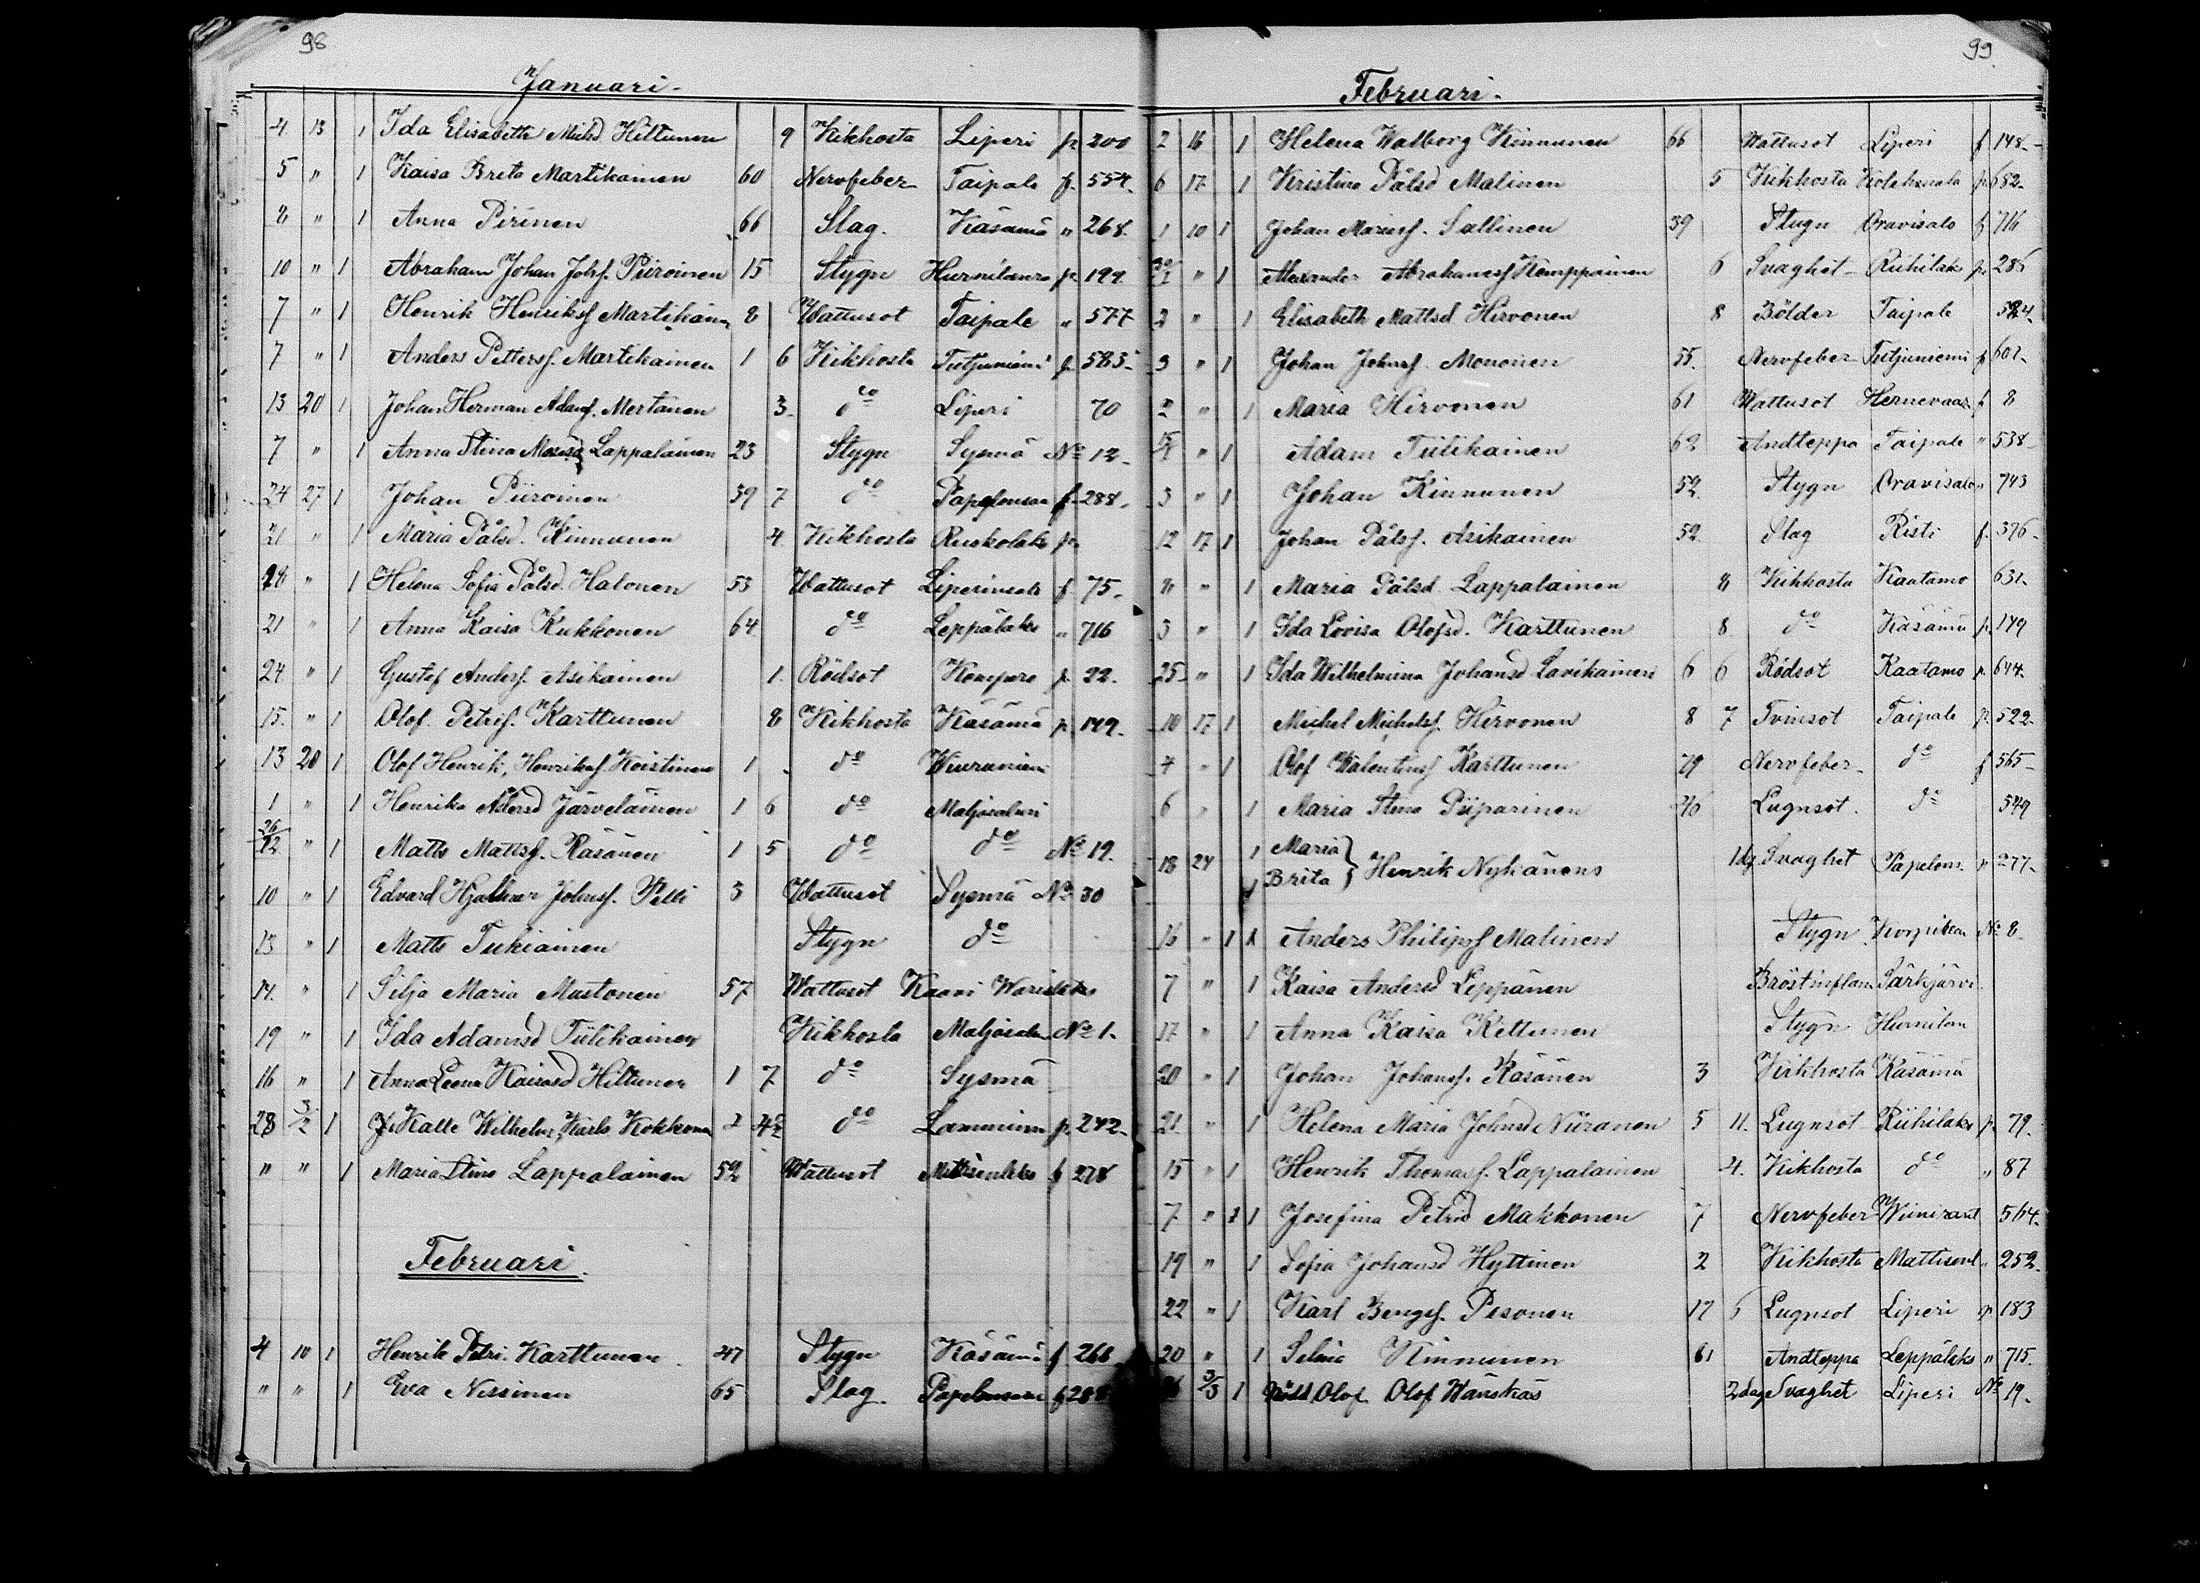 98
Januari.
4 13 1 Ida Elisabeth Michd Hiltunen 9 Kikhosta Liperi p 200
5 " 1 Kaisa Breta Martikainen 60 Nervfeber Taipale f. 554.
8 " 1 Anna Pirinen 66 Slag. Käsämä " 268.
10 " 1 Abraham Johan Johsf. Piiroinen 15 Stygn p. 199.
7 " 1 Henrik Henriksf Martikain 8 Wattusot Taipale " 577
7 " 1 Anders Pettersf. Martikainen 1 6 Kikhosta Tutjuniemi p 585
13 20 1 Johan Herman Adamsf. Mertanen 3 do Liperi 70
7 " 1 Anna Stina Lappalainen 23 Stygn Sysmä No 12.
24 27 1 Johan Piiroinen 39 7 do f. 288.
21 " 1 Maria Pålsd. Kinnunen 4 Kikhosta Ruskolaks p.
" 1 Helena Sofia Pålsd. Halonen 53 Wattusot Liperinsalo f 75.
21 " 1 Anna Kaisa Kukkonen 64 do Leppälaks " 716
24. " 1 Gustaf Andersf. Asikainen 1. Rödsot Kompero p 22.
15. " 1 Olof. Petrif. Karttunen 8 Kikhosta Käsämä p 149.
13 20 1 Olof Henrik, Henriksf. Koistinen 1 do
1 " 1 Henrika Järveläinen 1 6 do
26/12 " 1 Matts Mattsf. Räsänen 1 5 do do No 19.
10 " 1 Edvard Hjalmar Johnsf. Pelli 3 Wattusot Sysmä No 30
13 " 1 Matts Tukiainen Stygn do
14. " 1 Silja Maria Mustonen 57 Wattusot Kaavi
19 " 1 Ida Adamsd Tiilikainen Kikhosta No 1.
16 " 1 Anna Leena Kaisasd Hiltunen 1 7 do Sysmä
28 3/2 1 Kalle Wilhelm, Karls. Kokkonen 2 do p. 242.
" " 1 Maria Stina Lappalainen 52 Wattusot f 278
Februari.
4 10 1 Henrik Petri. Karttunen. 47 Stygn Käsämä f 266
" " 1 Eva Nissinen 65 Slag. f 288
99.
Februari.
2 16 1 Helena Walborg Kinnunen 66 Wattusot Liperi f 148.
6 17 1 Kristina Pålsd Malinen 5 Kikhosta p. 682.
1 10 1 Johan Mariasf. Sallinen 39 Stygn Oravisalo f 716
" 1 Alexander Abrahamsf Kemppainen 6 Svaghet Riihilaks p. 286
2 " 1 Elisabeth Mattsd Hirvonen 8 Bölder Taipale 524.
3 " 1 Johan Johnsf. Mononen 55. Nervfeber Tutjuniemi f 601.
2 " 1 Maria Hirvonen 61 Wattusot Hernevaar f 8
" 1 Adam Tiilikainen 62 Andteppa Taipale " 538
3 " 1 Johan Kinnunen 52. Stygn Oravisalo " 743
12 17 1 Johan Pålsf. Asikainen 52 Slag Risti f. 376.
8 " 1 Maria Pålsd Lappalainen 8 Kikhosta Kaatamo 631.
3 " 1 Ida Lovisa Olofsd. Karttunen 8 do Käsämä p. 149
25 " 1 Ida Wilhelmina Johansd Lavikainen 6 6 Rödsot Kaatamo p. 644.
10 17 1 Michel Michelsf. Hirvonen 8 7 Tvinsot Taipale p. 522.
4 " 1 Olof Walentinsf Karttunen 79 Nervfeber do f 565
6 " 1 Maria Stina Piiparinen Lugnsot. do 549
18 24 1 Maria } Henrik Nykänens 1 dg Svaghet Papelons. " 277.
1 Brita
16 " 1 Anders Philipsf Malinen Stygn No 8
7 " 1 Kaisa Andersd Leppänen Bröstinflam Särkjärvi
17 " 1 Anna Kaisa Kettunen Stygn
20 " 1 Johan Johansf. Räsänen 3 Kikhosta Käsämä
21. " 1 Helena Maria Johnsd Niiranen 5 11. Lugnsot Riihilaks p. 79.
15 " 1 Henrik Thomasf. Lappalainen 4. Kikhosta do " 87
7 " 1 Josefina Petrid Makkonen 7 Nervfeber 564.
19 " 1 Sofia Johansd Hyttinen 2 Kikhosta " 252.
22 " 1 Karl Bengtsf. Pesonen 17 6 Lugnsot Liperi p. 183
20 " 1 Selma Kinnunen 61 Andteppa Leppälaks " 715.
26 3/3 1 Olof. Olof Wänskäs 2 dag Svaghet Liperi No 19.